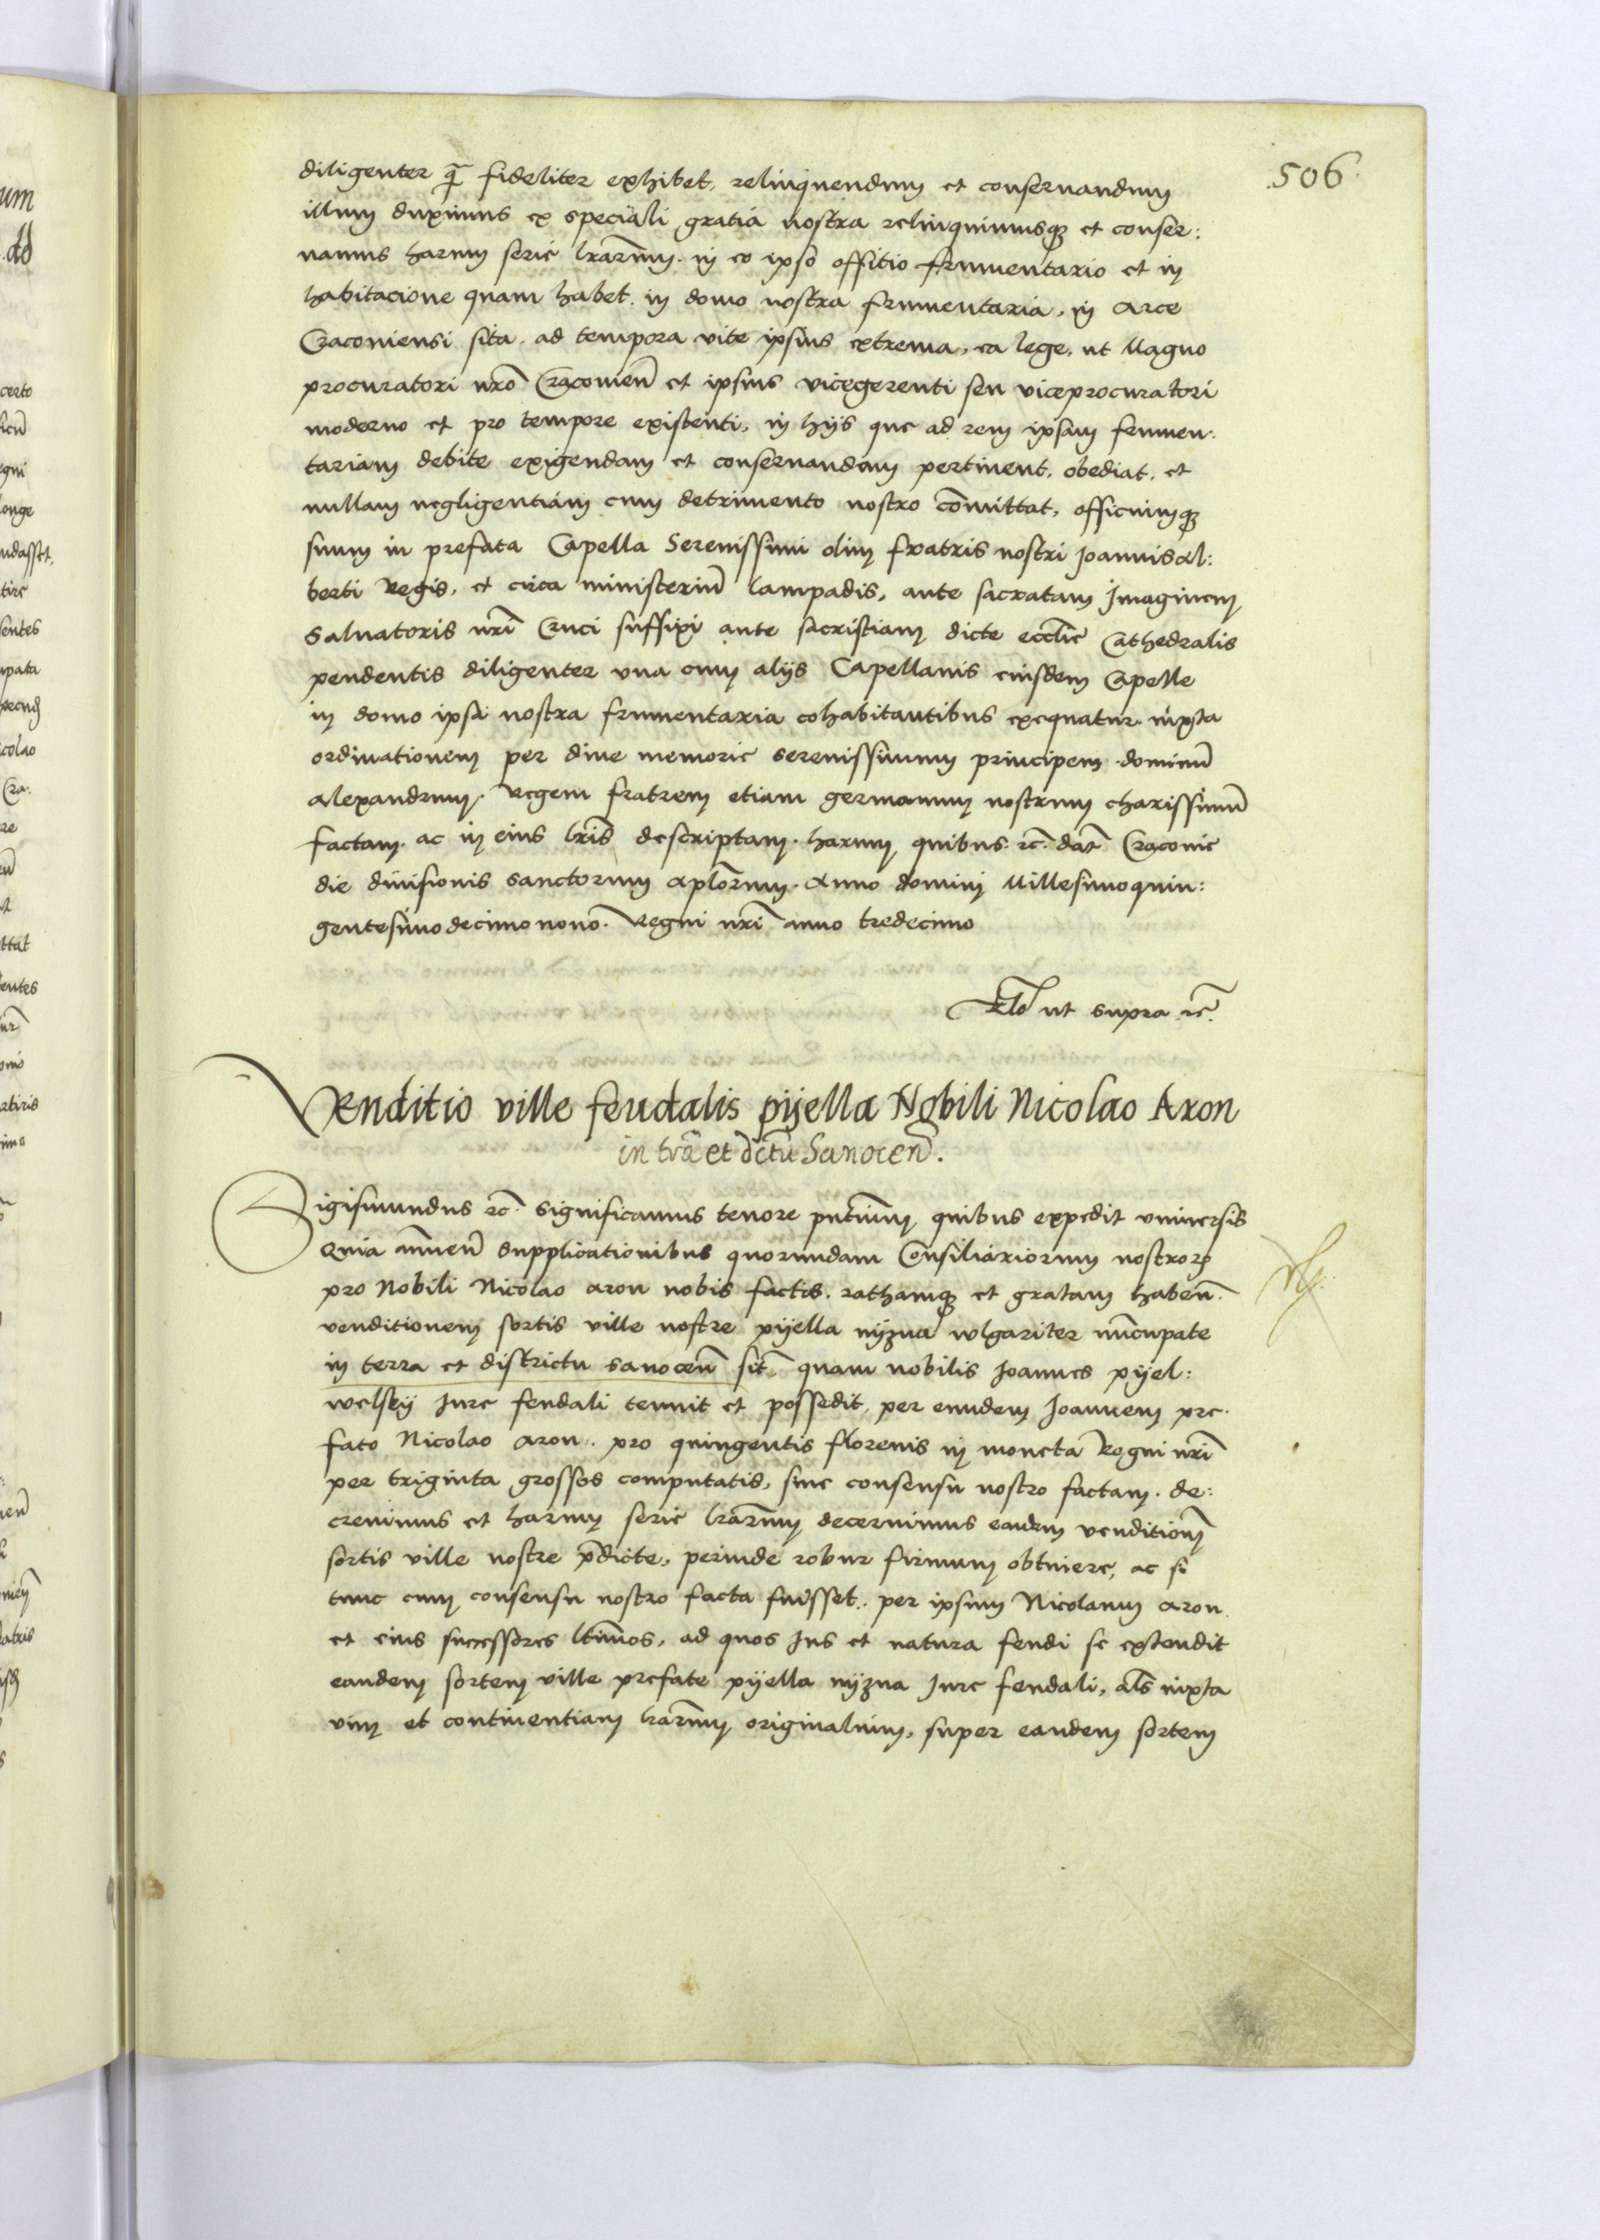 506
diligenter q̃ fideliter exhibet, relinquendum et conseruandum
illum duximus ex speciali gratia nostra relinquimusq3 et conser:
uamus harum serie lrarũm. in eo ipso offitio frumentario et in
habitacione quam habet. in domo nostra frumentaria, in Arce
Cracouiensi sita. ad tempora vite ipsius extrema, ea lege, ut Magno
procuratori nrõ Cracouieñ et ipsius vicegerenti seu viceprocuratori
moderno et pro tempore existenti, in hijs que ad rem ipsam frumen:
tariam debite exigendam et conseruandam pertinent, obediat, et
nullam negligentiam cum detrimento nostro cõmittat, officiumq3
suum in prefata Capella Serenissimi olim fratris nostri Joannis Al:
berti Regis, et circa ministeriũ lampadis, ante sacratam Imaginem
Saluatoris nrĩ Cruci suffixi ante sacristiam dicte ecclĩe Cathedralis
pendentis diligenter vna cum alijs Capellanis eiusdem Capelle
in domo ipsa nostra frumentaria cohabitantibus exequatur iuxta
ordinationem per diue memorie serenissimum principem dominũ
Alexandrum. Regem fratrem etiam germanum nostrum charissimũ
factam. ac in eius lrĩs descriptam. harum quibus rc̃. dat̃ Cracouie
die diuisionis sanctorum aplõrum. Anno domini Millesimoquin:
gentesimodecimonono. Regni nrĩ anno tredecimo
Rlõ ut supra rc̃.
Venditio ville feudalis pijella Nobili Nicolao Aron
in trã et dictũ Sanoceñ.
Sigismundus rc̃. Significamus tenore pntiũm quibus expedit vniuersis
Quia ãnueñ supplicationibus quorundam Consiliariorum nostrorꝝ
pro Nobili Nicolao Aron nobis factis. rathamq3 et gratam habeñ.
venditionem sortis ville nostre pijella nyzna wlgariter nũcupate
in terra et districtu sanoceñ sit̃. quam nobilis Joannes pijel:
welsky Jure feudali tenuit et possedit, per eundem Joannem pre:
fato Nicolao Aron. pro quingentis florenis in moneta Regni nrĩ
per triginta grossos computatis, sine consensu nostro factam. de:
creuimus et harum serie lrarũm decernimus eandem venditionẽ
sortis ville nostre p̃dicte, perinde robur firmum obtinere, ac si
tunc cum consensu nostro facta fuisset. per ipsum Nicolaum Aron
et eius successores ltimõs, ad quos Jus et natura feudi se extendit
eandem sortem ville prefate pijella nyzna Jure feudali, als̃ iuxta
vim et continentiam lrarũm originalium, super eandem sortem